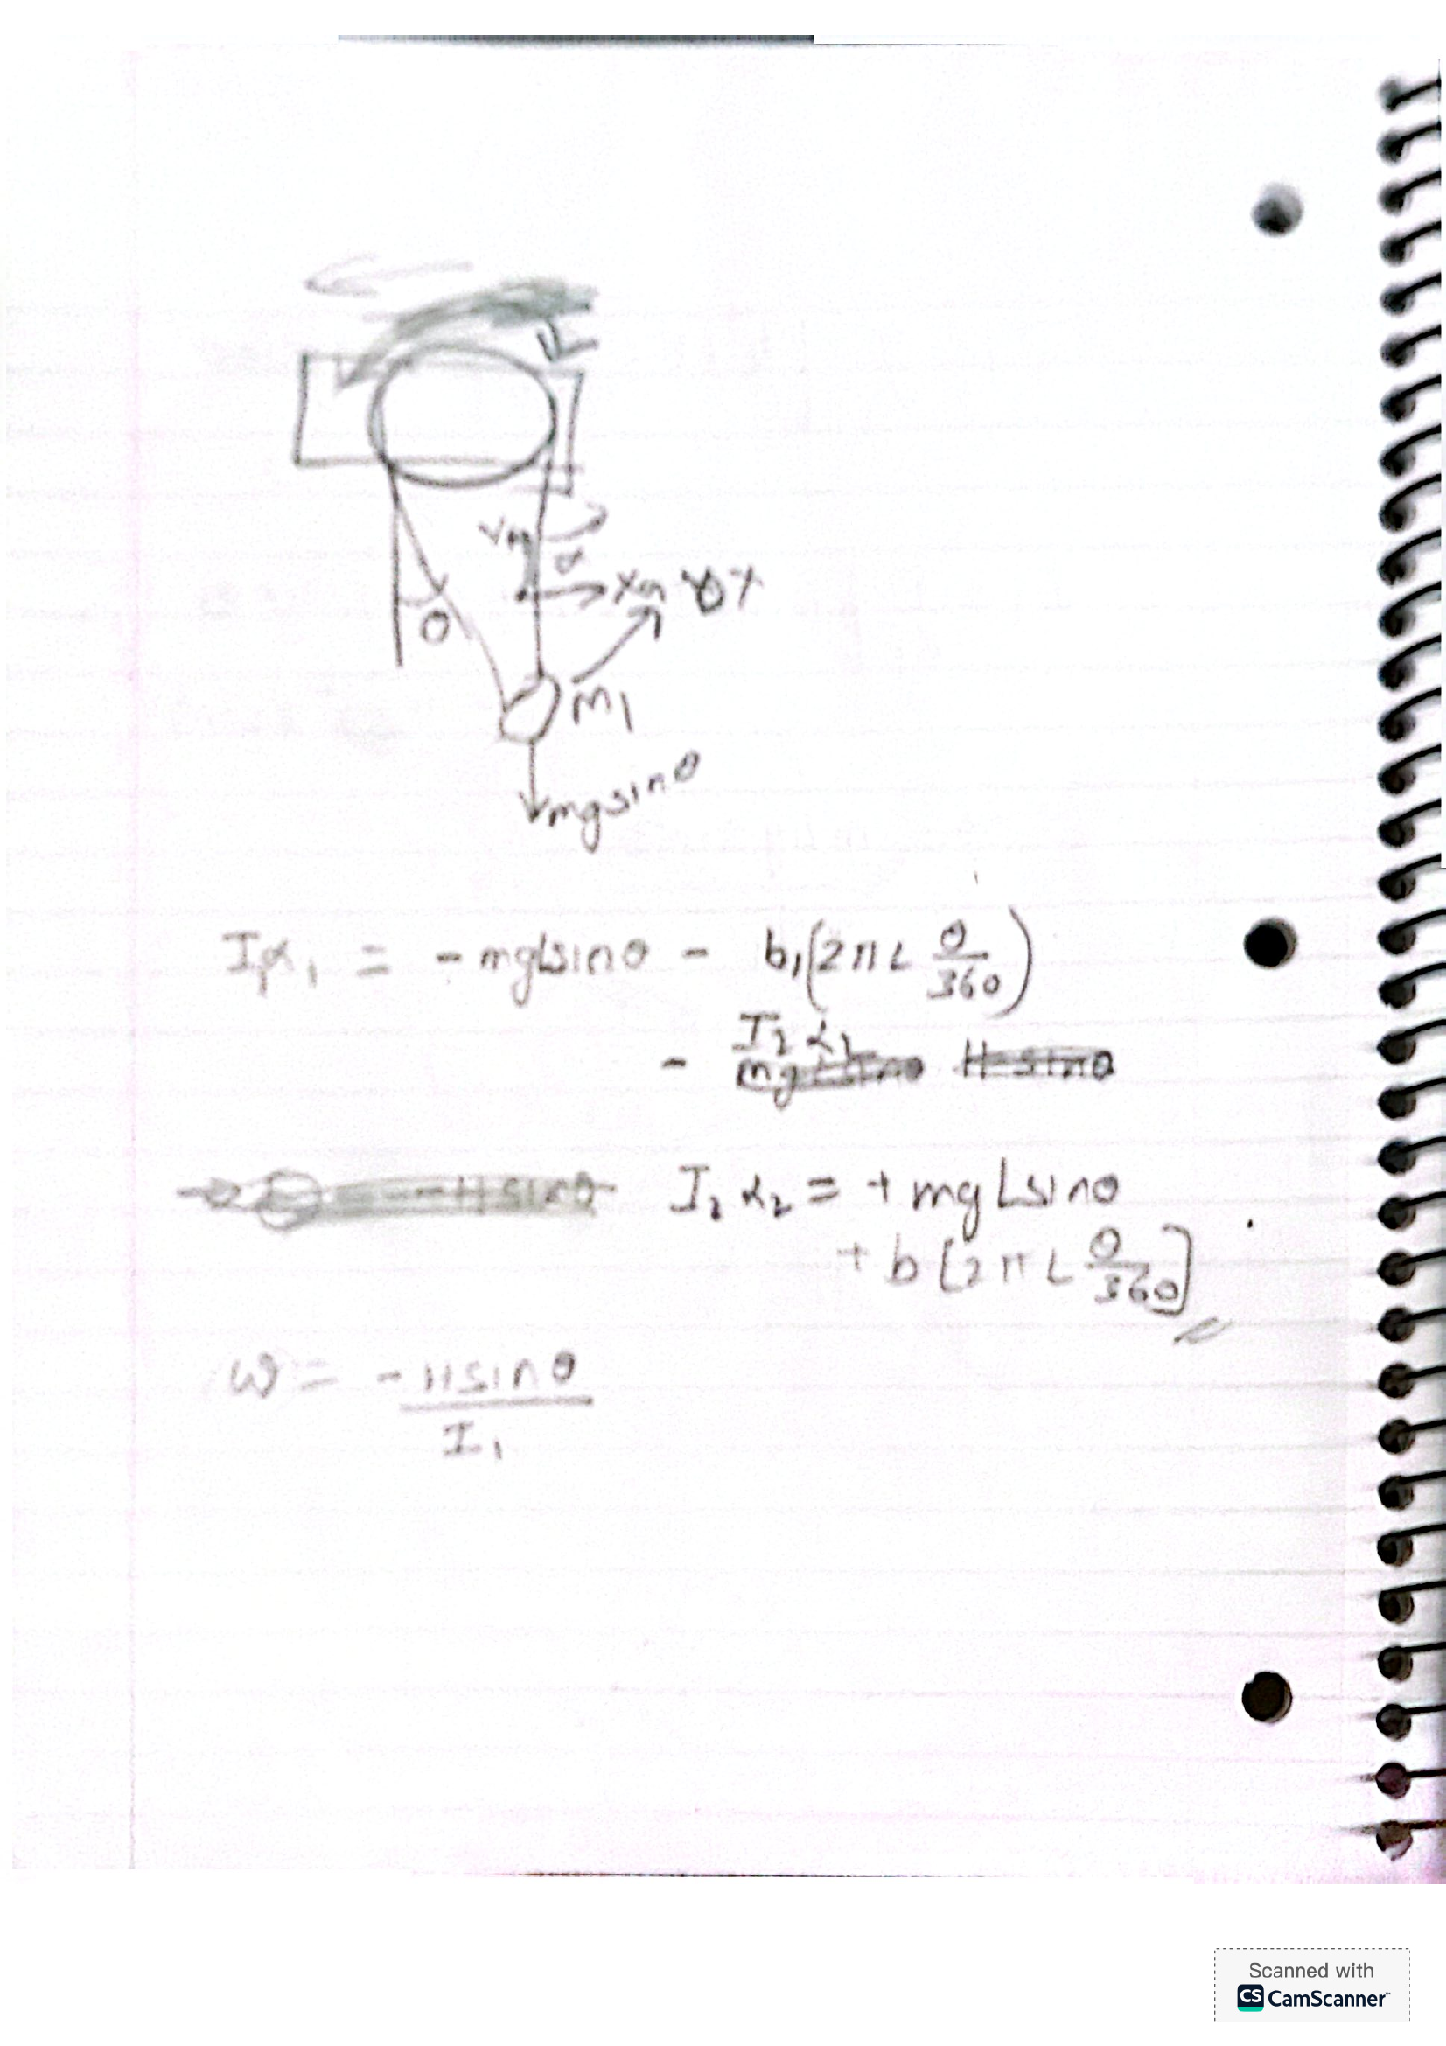 θ
α
M₁
mg sinθ
I₁α₁ = - mgLsinθ - b₁(2πL θ/360)
- I₂α₂
I₂α₂ = + mgLsinθ
+ b[2πL θ/360]
ω = - 11sinθ / I₁
Scanned with
CS CamScanner